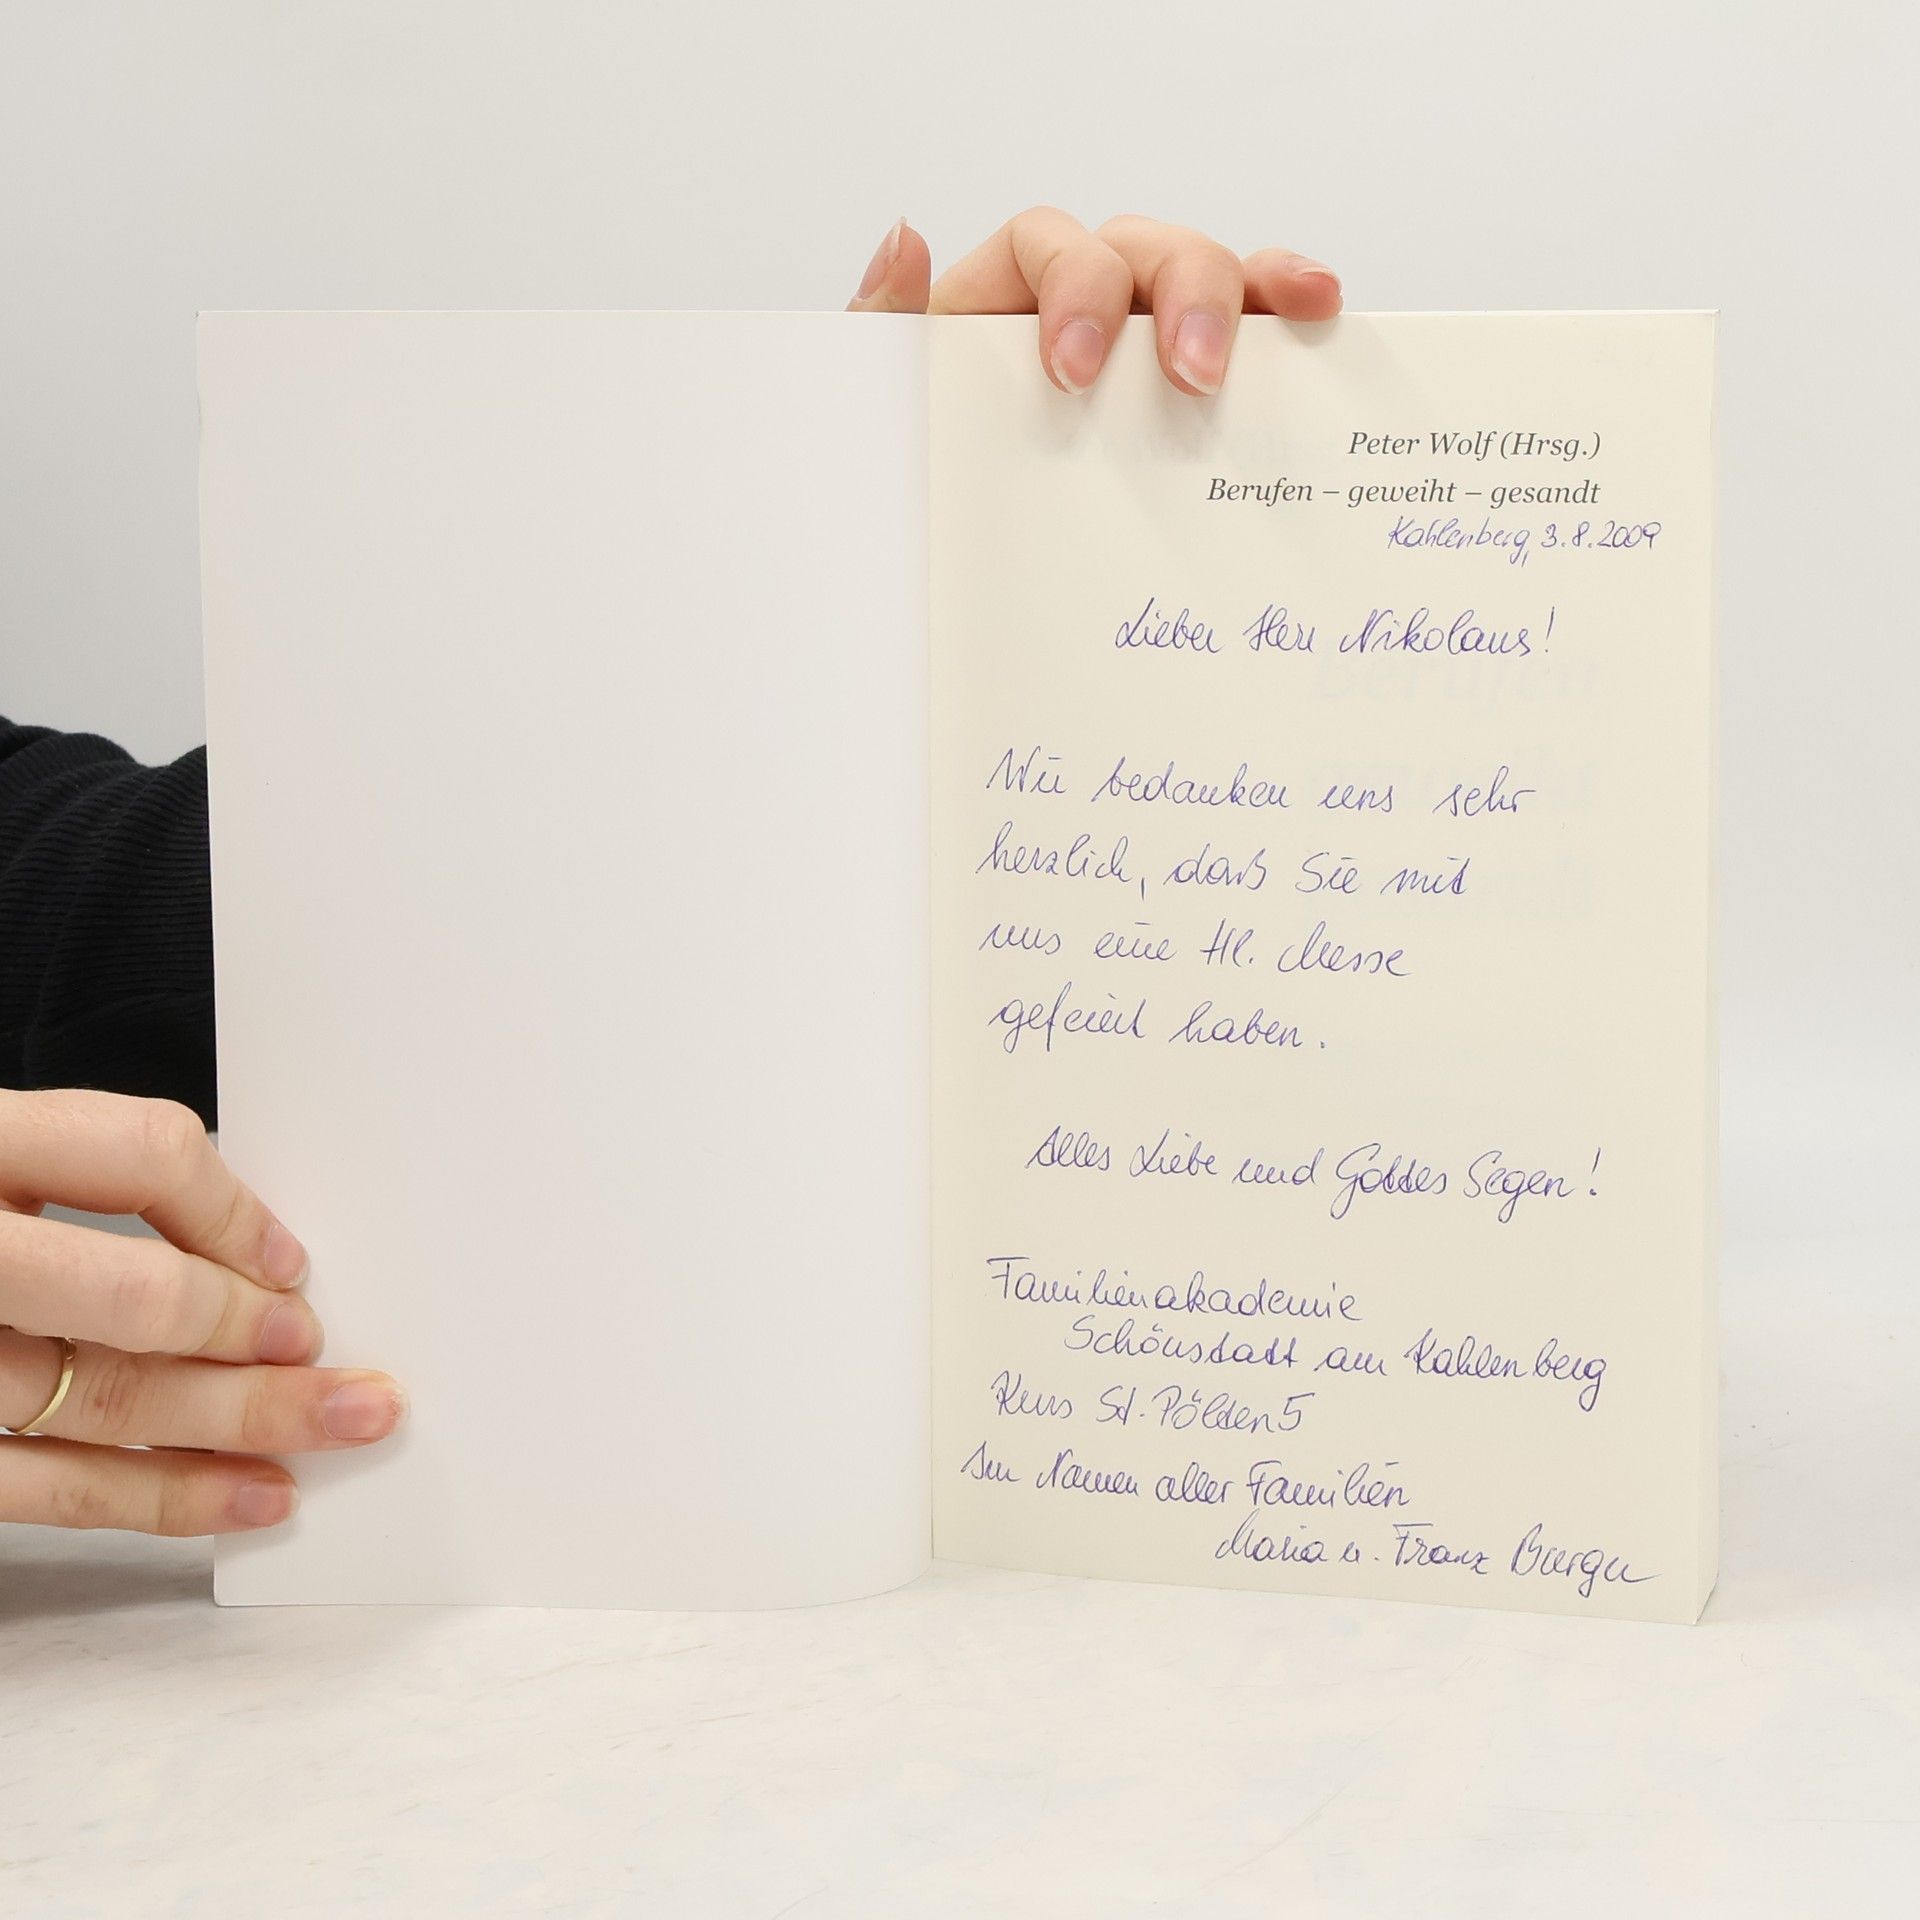 Peter Wolf (Hrsg.)
Berufen – geweiht – gesandt
Kahlenberg, 3.8.2009
Lieber Herr Nikolaus!
Wir bedanken uns sehr
herzlich, daß Sie mit
uns eine Hl. Messe
gefeiert haben.
Alles Liebe und Gottes Segen!
Familienakademie
Schönstatt am Kahlenberg
Kurs St. Pölten 5
Im Namen aller Familien
Maria u. Franz